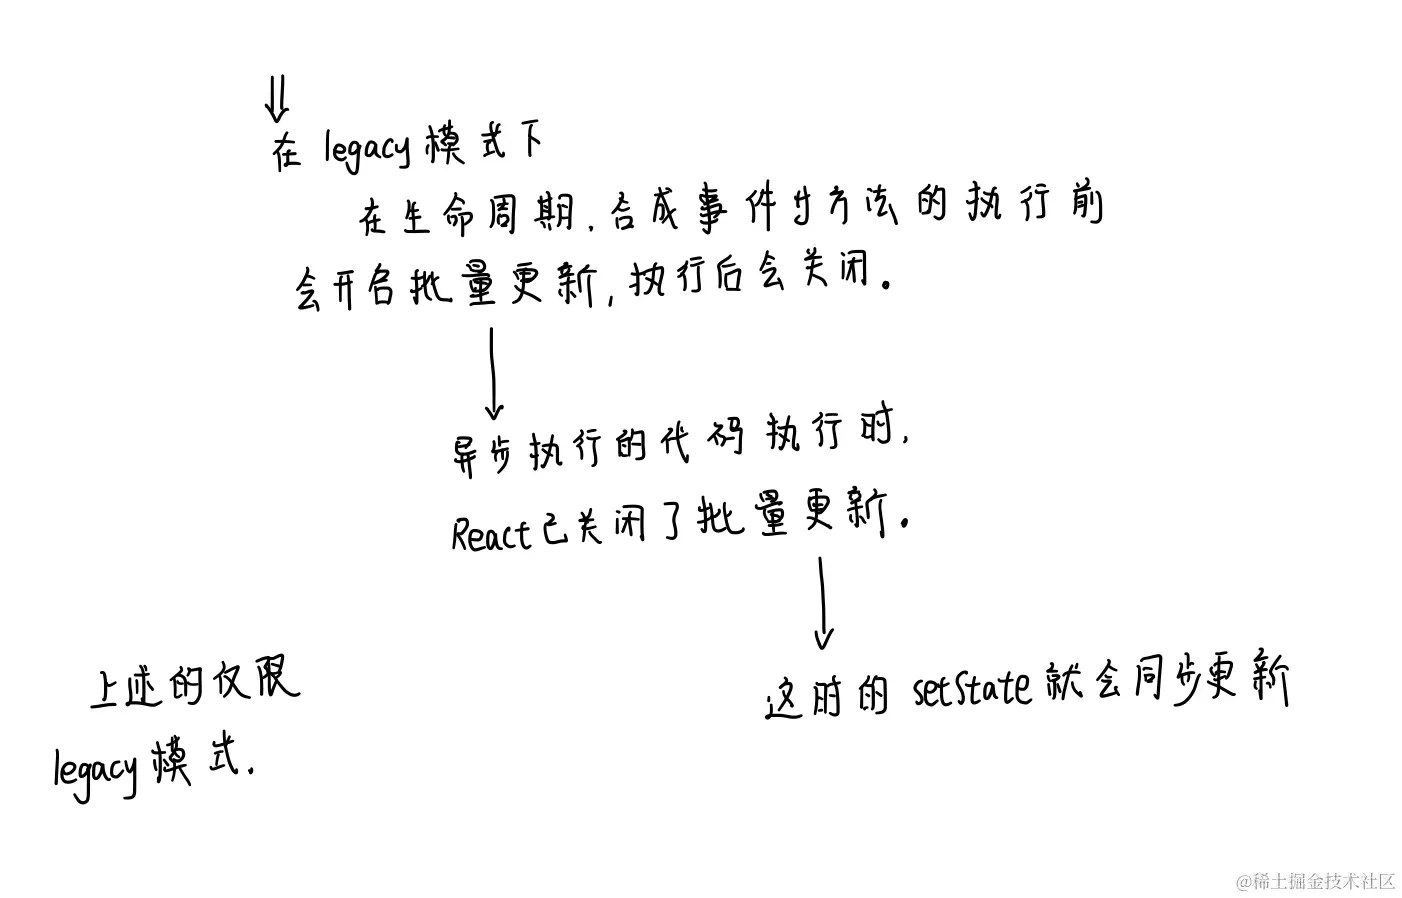 在 legacy 模式下
在生命周期.合成事件等方法的执行前
会开启批量更新,执行后会关闭。
异步执行的代码执行时,
React已关闭了批量更新。
这时的 setState 就会同步更新
上述的仅限
legacy 模式.
@稀土掘金技术社区